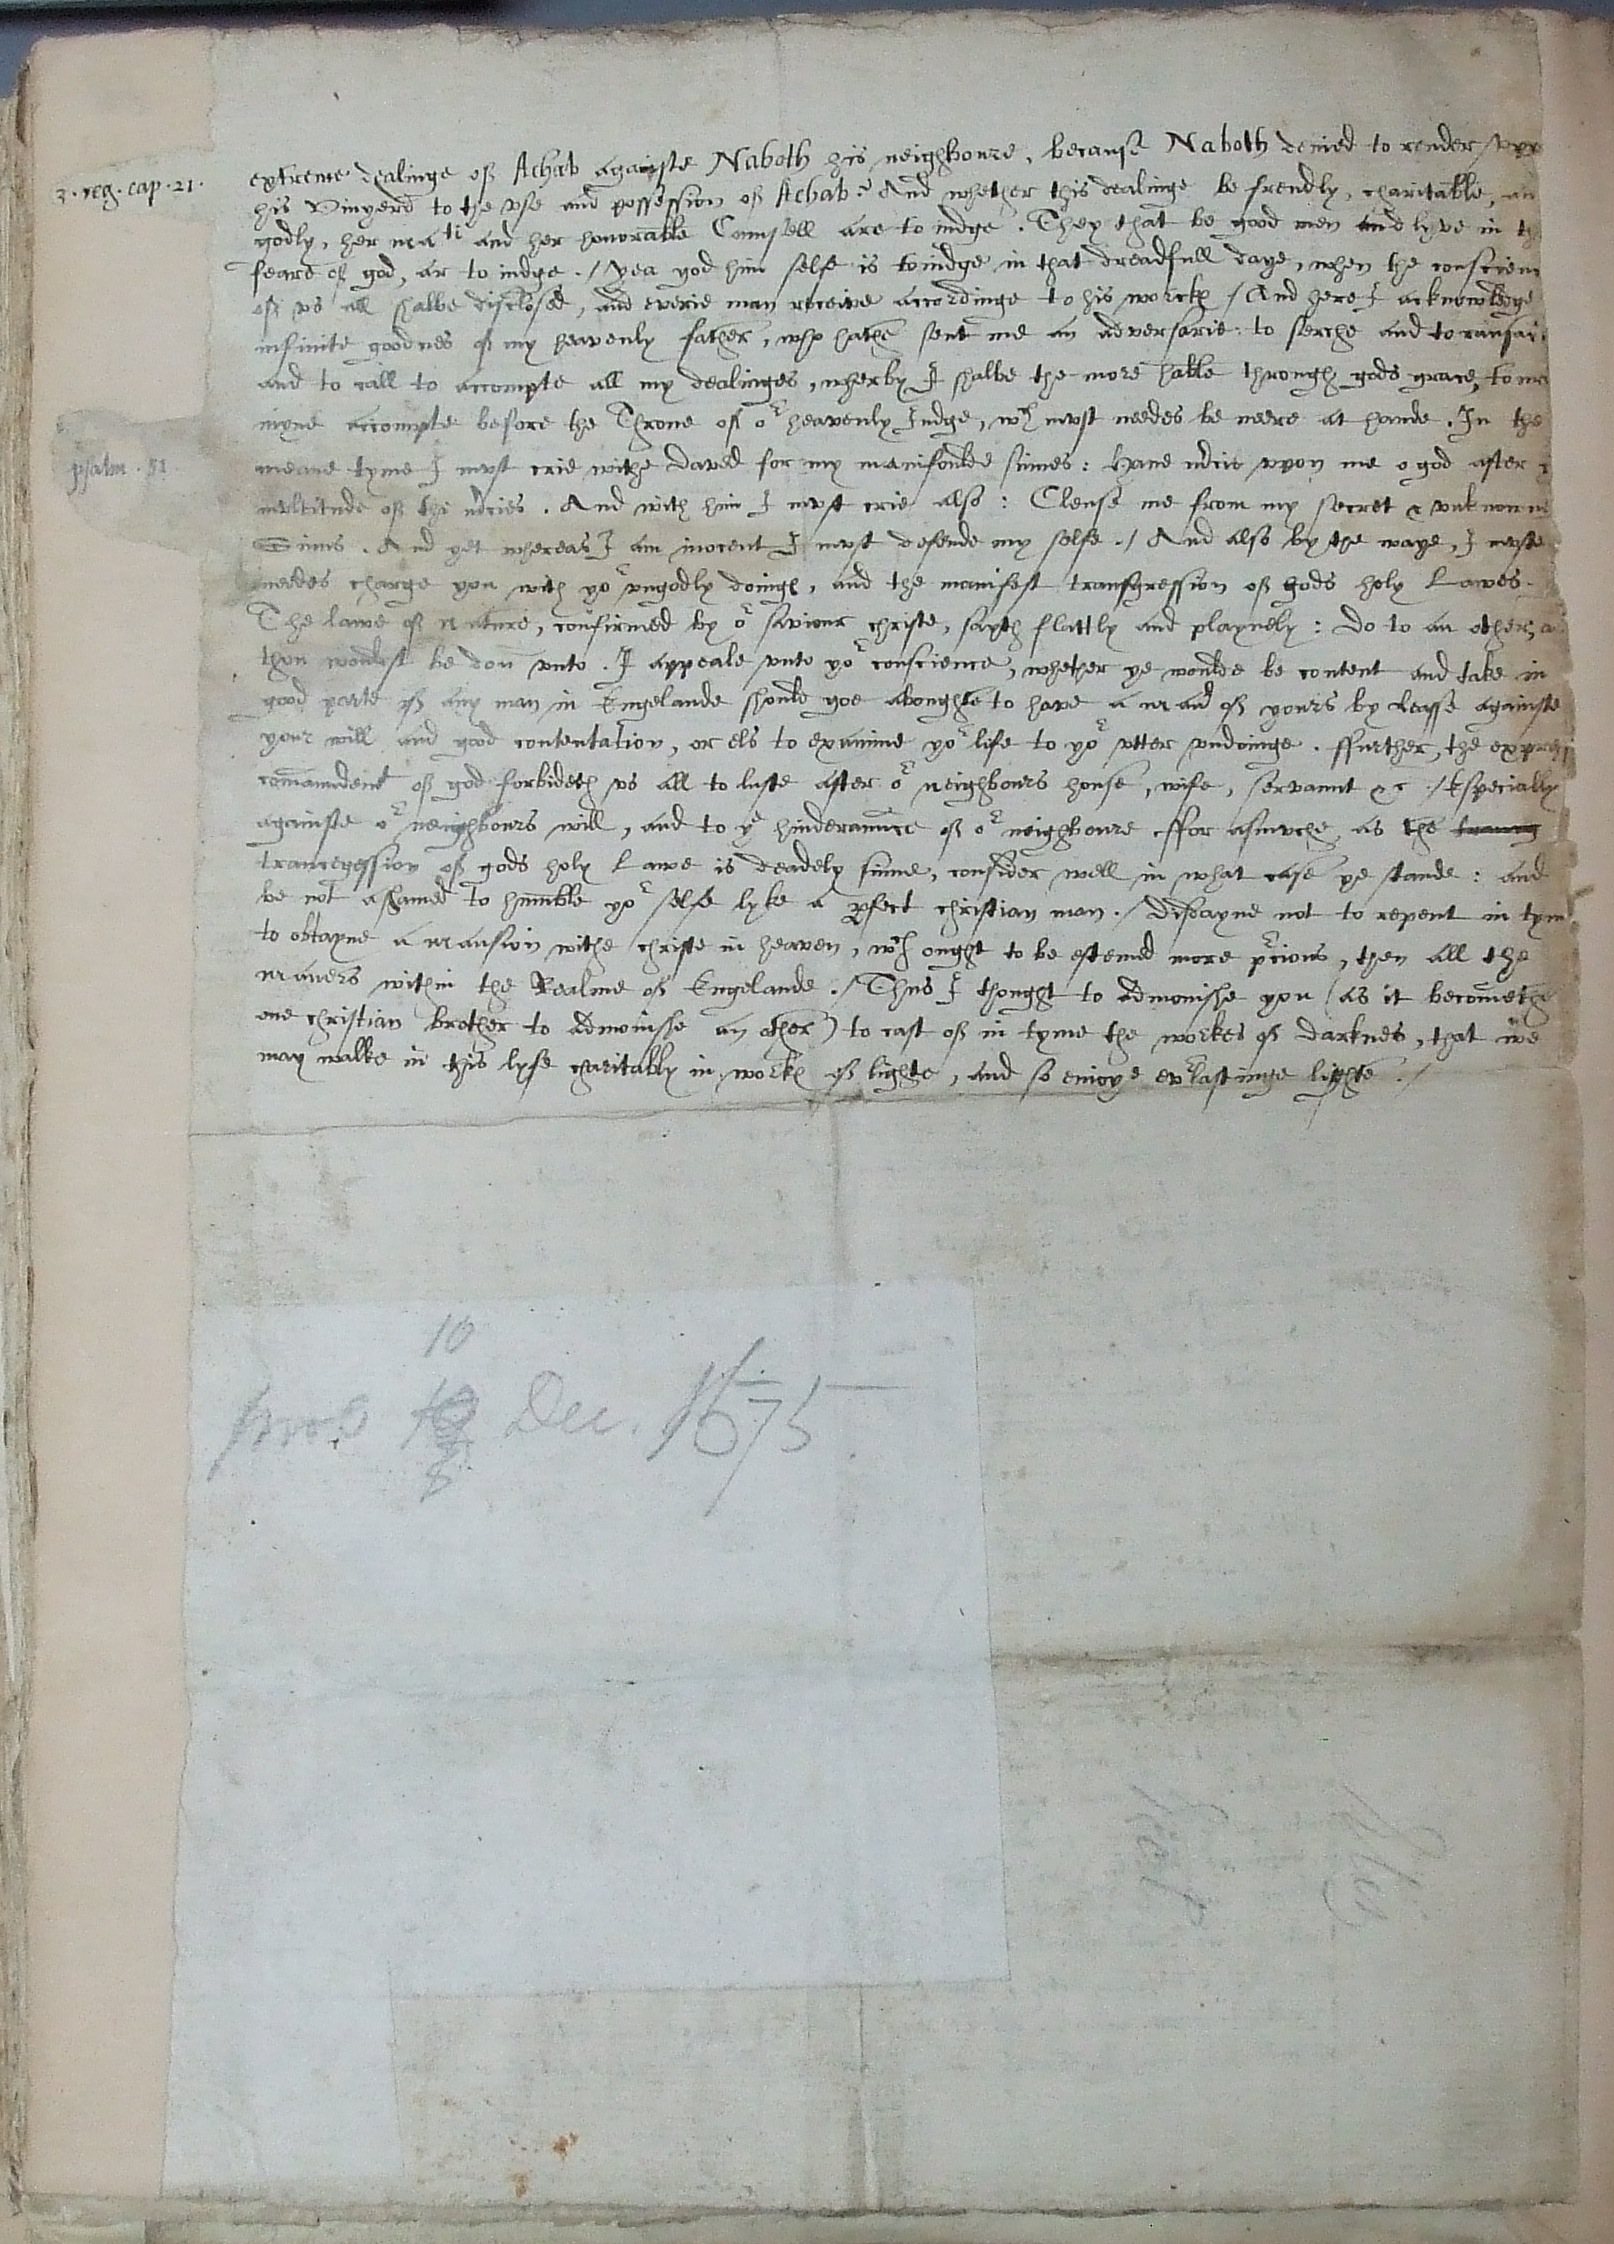 3 . reg . cap . 21 .
extreme dealinge of Achab againste Naboth his neighboure, because Naboth denied to render upp
his Vinyerd to the use and possession of Achab? And whether this dealinge be frendly, charitable, an
godly, her mati and her honorable Counsell are to iudge . They that be good men and lyve in th
feare of god, ar to iudge ./ yea god him selfe is to iudge in that dreadfull daye, when the conscienc
of us all shalbe disclosed, and everie man receive accordinge to his workes / And here I acknowledge
infinite goodnes of my heavenly father, who hathe sent me an adversarie : to serche and to ransac
and to call to accompte all my dealinges, wherby I shalbe the more hable through gods grace, to
myne accompte before the Throne of or heavenly Iudge, wch must needes be neere at hande . In the
psalm . 51
meane tyme I must crie withe David for my manifoulde sinnes : Have mercie upon me o god after
multitude of thi mercies . And with him I must crie also : Clense me from my secret & unknowne
Sinns . And yet whereas I am inocent I must defende my selfe ./ And also by the waye, I muste
needes charge you with yor ungodly doinges, and the manifest transgression of gods holy Lawes .
The lawe of nature, confirmed by or saviour christe, sayth flattly and playnely : Do to an other, as
thou wouldst be don unto . I appeale unto yor conscience, whether ye woulde be content and take in
good parte if any man in Engelande should goe aboughte to have a manor of yours by leasse againste
your will and good contentation, or els to examine yor life to yor utter undoinge . ffurther, the expresse
comaundent of god forbideth us all to luste after or neighbours house, wife, servaunt &c / Especially
againste or neighbours will, and to ye hinderaunce of or neighboure ffor asmuche as the transg
transgression of gods holy Lawe is deadely sinne, consider well in what case ye stande : and
be not ashamed to humble yor selfe lyke a pfect christian man ./ Disdayne not to repent in tyme
to obtayne a mansion withe christe in heaven, wch ought to be estemed more prcious, then all the
maners within the Realme of Engelande ./ Thus I thought to admonishe you (as it becometh
one christian brother to admonishe an other) to cast of in tyme the workes of darknes, that we
may walke in this lyfe charitably in workes of lighte, and so enioye evrlastinge lighte ./
10
Dec. 1575
8